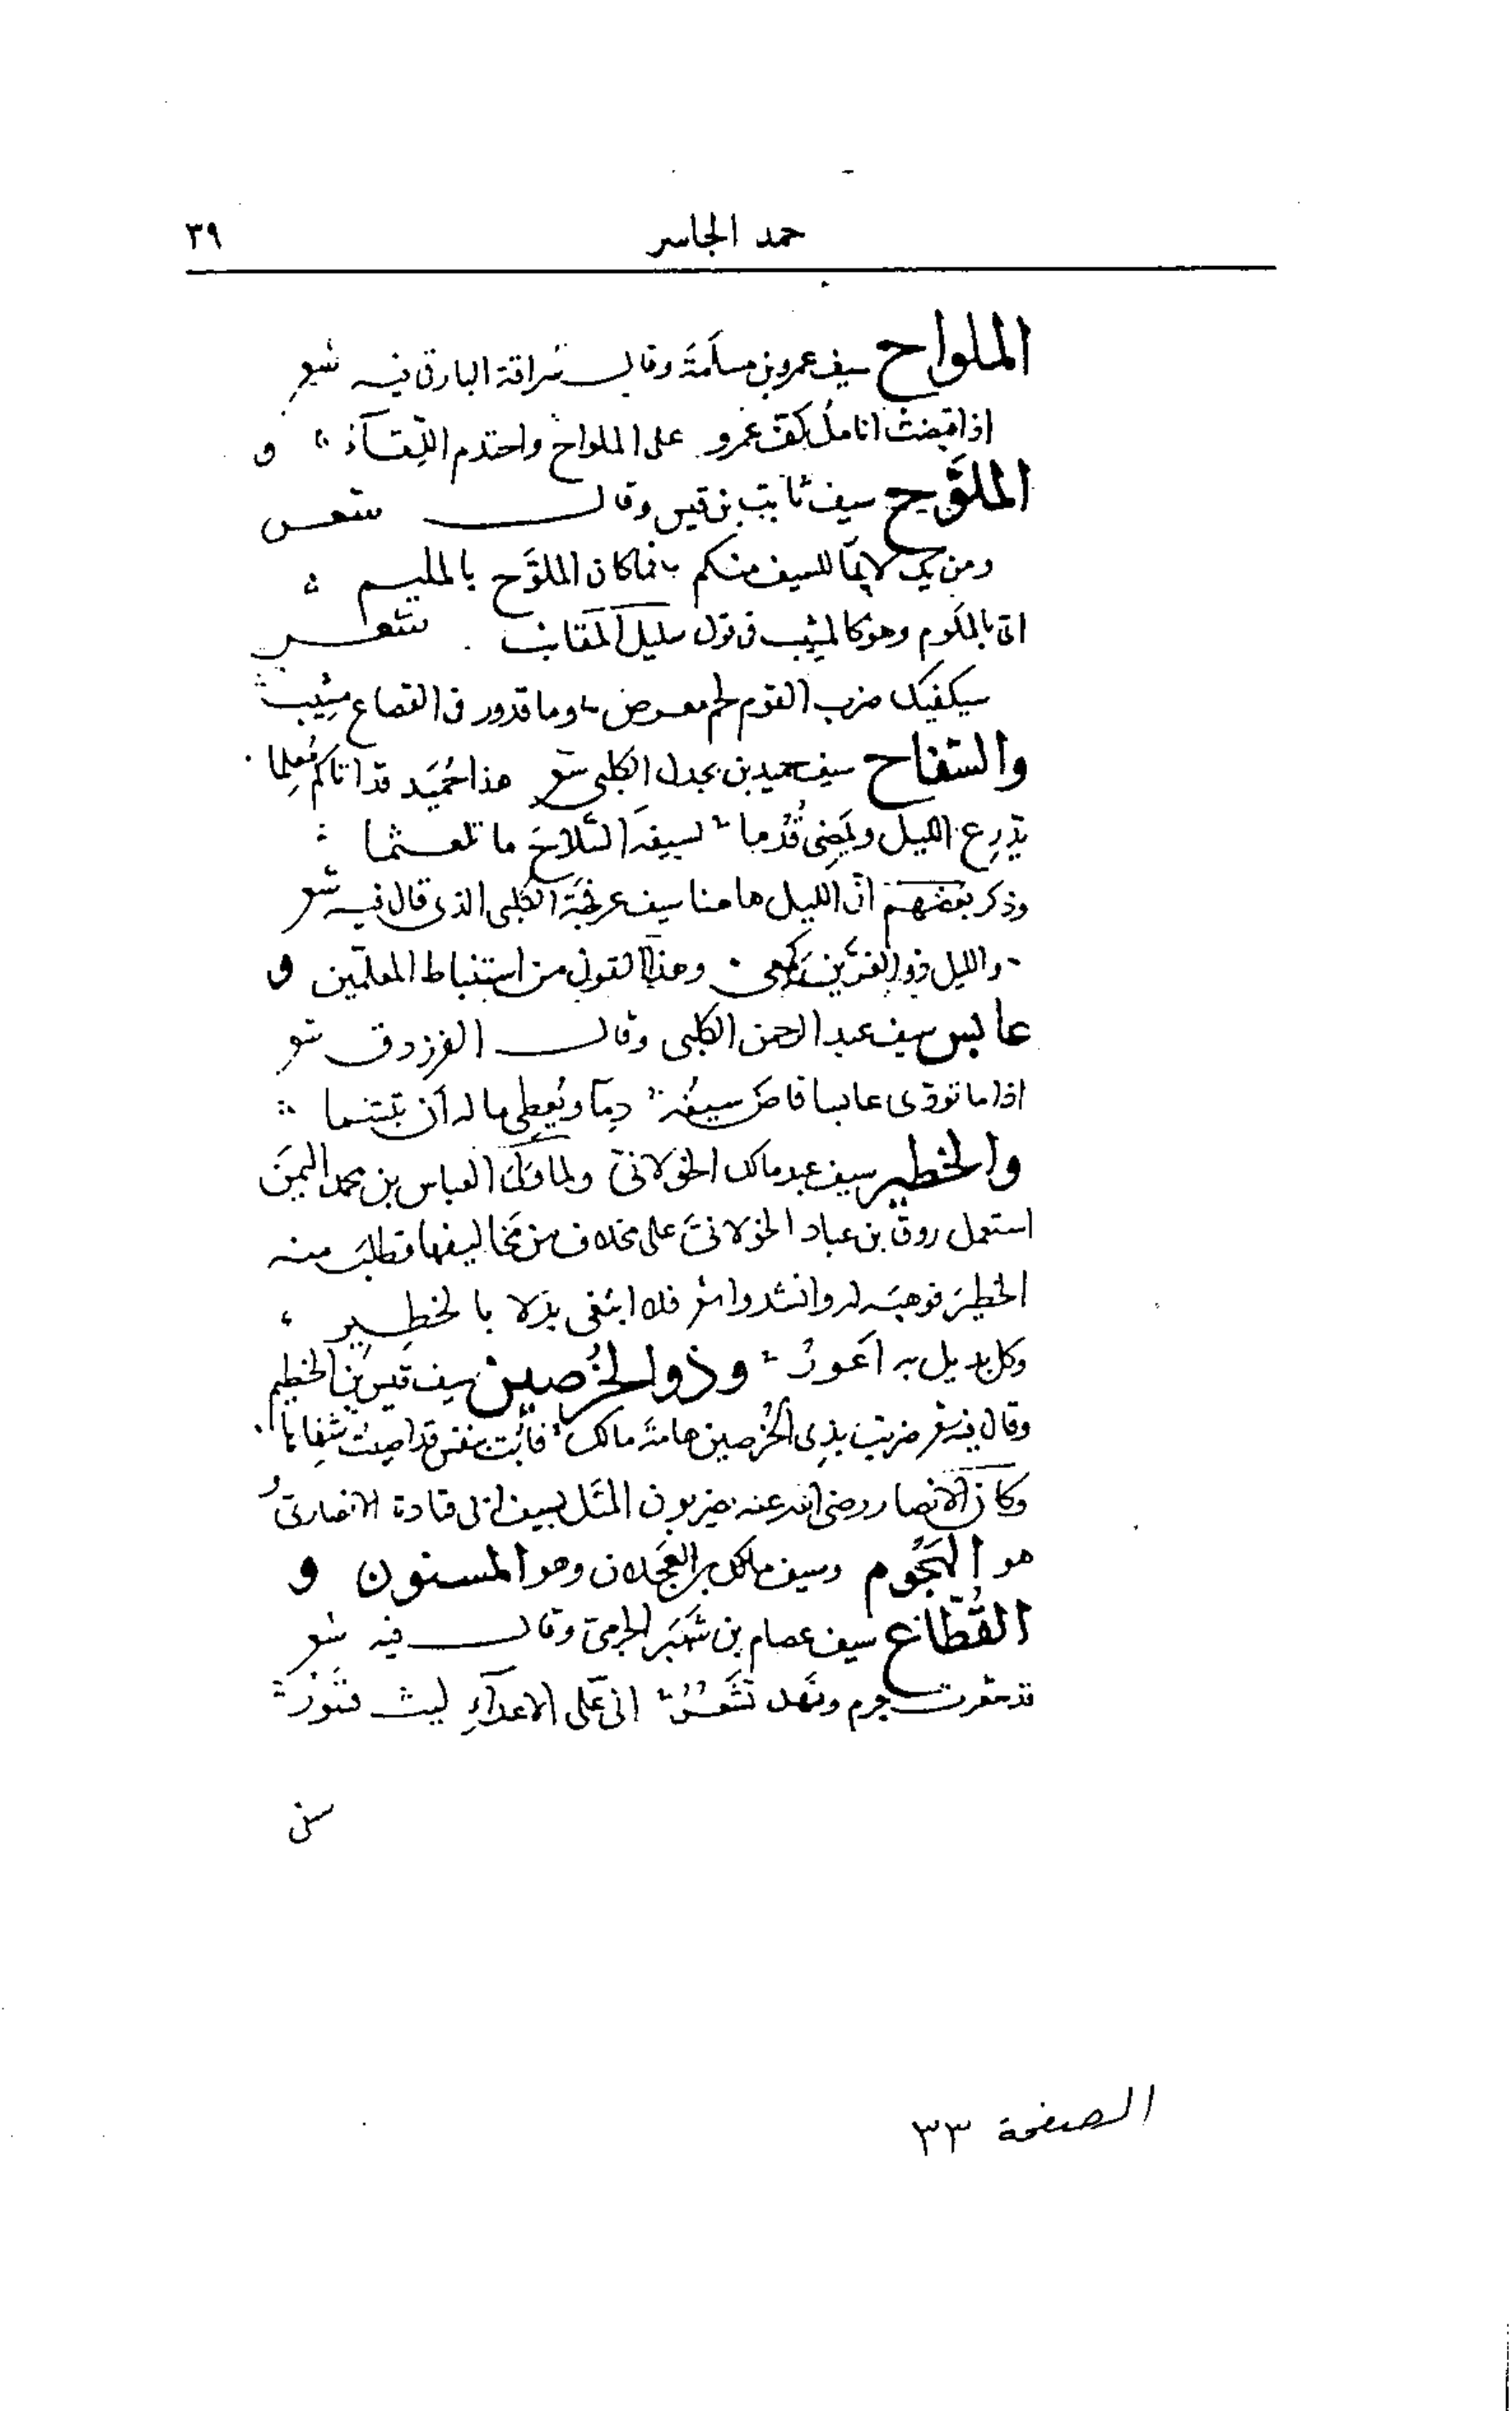 حمد الجاسر ٣٩
الملواح سيف عمرو بن مسلمة وقال سراقة البارقى فيه شعر
اذا قبضت انامل كف عمرو على الملواح واحتدم اللقآء و
الملوَّح سيف ثابت بن قيس وقال شعر
ومن يك لائما للسيف منكم فما كان الملوَّح بالمليم
اى بالملوم وهو كالمشيب فى قول سليك المقانب شعر
سيكفيك ضرب القوم لحم معرض وما قدور فى القصاع مشيب
والسفاح سيف حميد بن بحدل الكلبى شعر هذا حُمَيد قد اتاكم مُعلِما
يدرع الليل ويمضى قُدُما لسيفه السفاح ما تلعثما
وذكر بعضهم انّ الليل هاهنا سيف عرفجة الكلبى الذى قال فيه شعر
والليل ذو الغربين وهذا القول من استنباط المعلّمين و
عابس سيف عبد الرحمن الكلبى وقال الفرزدق شعر
اذا ما تردى عابسا فاض سيفه دمآ ويُعطى ماله ان تبسّما
والخطير سيف عبد مالك الخولانى ولما ولى العباس بن محمد اليمن
استعمل روق بن عباد الخولانى على مخلاف من مخاليفها فطلب منه
الخطير فوهبه له وانشد واشعر فلا ابتغى بدلا بالخطير
وكل بديل به اعور وذو الخُرصين سيف قيس بن الخطيم
وقال فيه شعر ضربت بذى الخُرصين هامة مالك فأبت بنفس قد اصبت شفاها
وكان الانصار رضى الله عنه يضربون المثل بسيف ابى قتادة الانصارىّ
هو الهَجُوم وسيف مالك بن العجلان وهو المسنون و
القُطّاع سيف عصام بن شَهبَر الجرمى وقال فيه شعر
قد جرم ونهد انى على الاعدآءِ ليث
الصفحة ٣٣